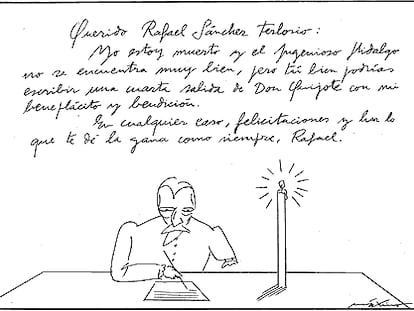 Querido Rafael Sánchez Ferlosio:
Yo estoy muerto y el Ingenioso Hidalgo
no se encuentra muy bien, pero tú bien podrías
escribir una cuarta salida de Don Quijote con mi
beneplácito y bendición.
En cualquier caso, felicitaciones y haz lo
que te dé la gana como siempre, Rafael.
máximo